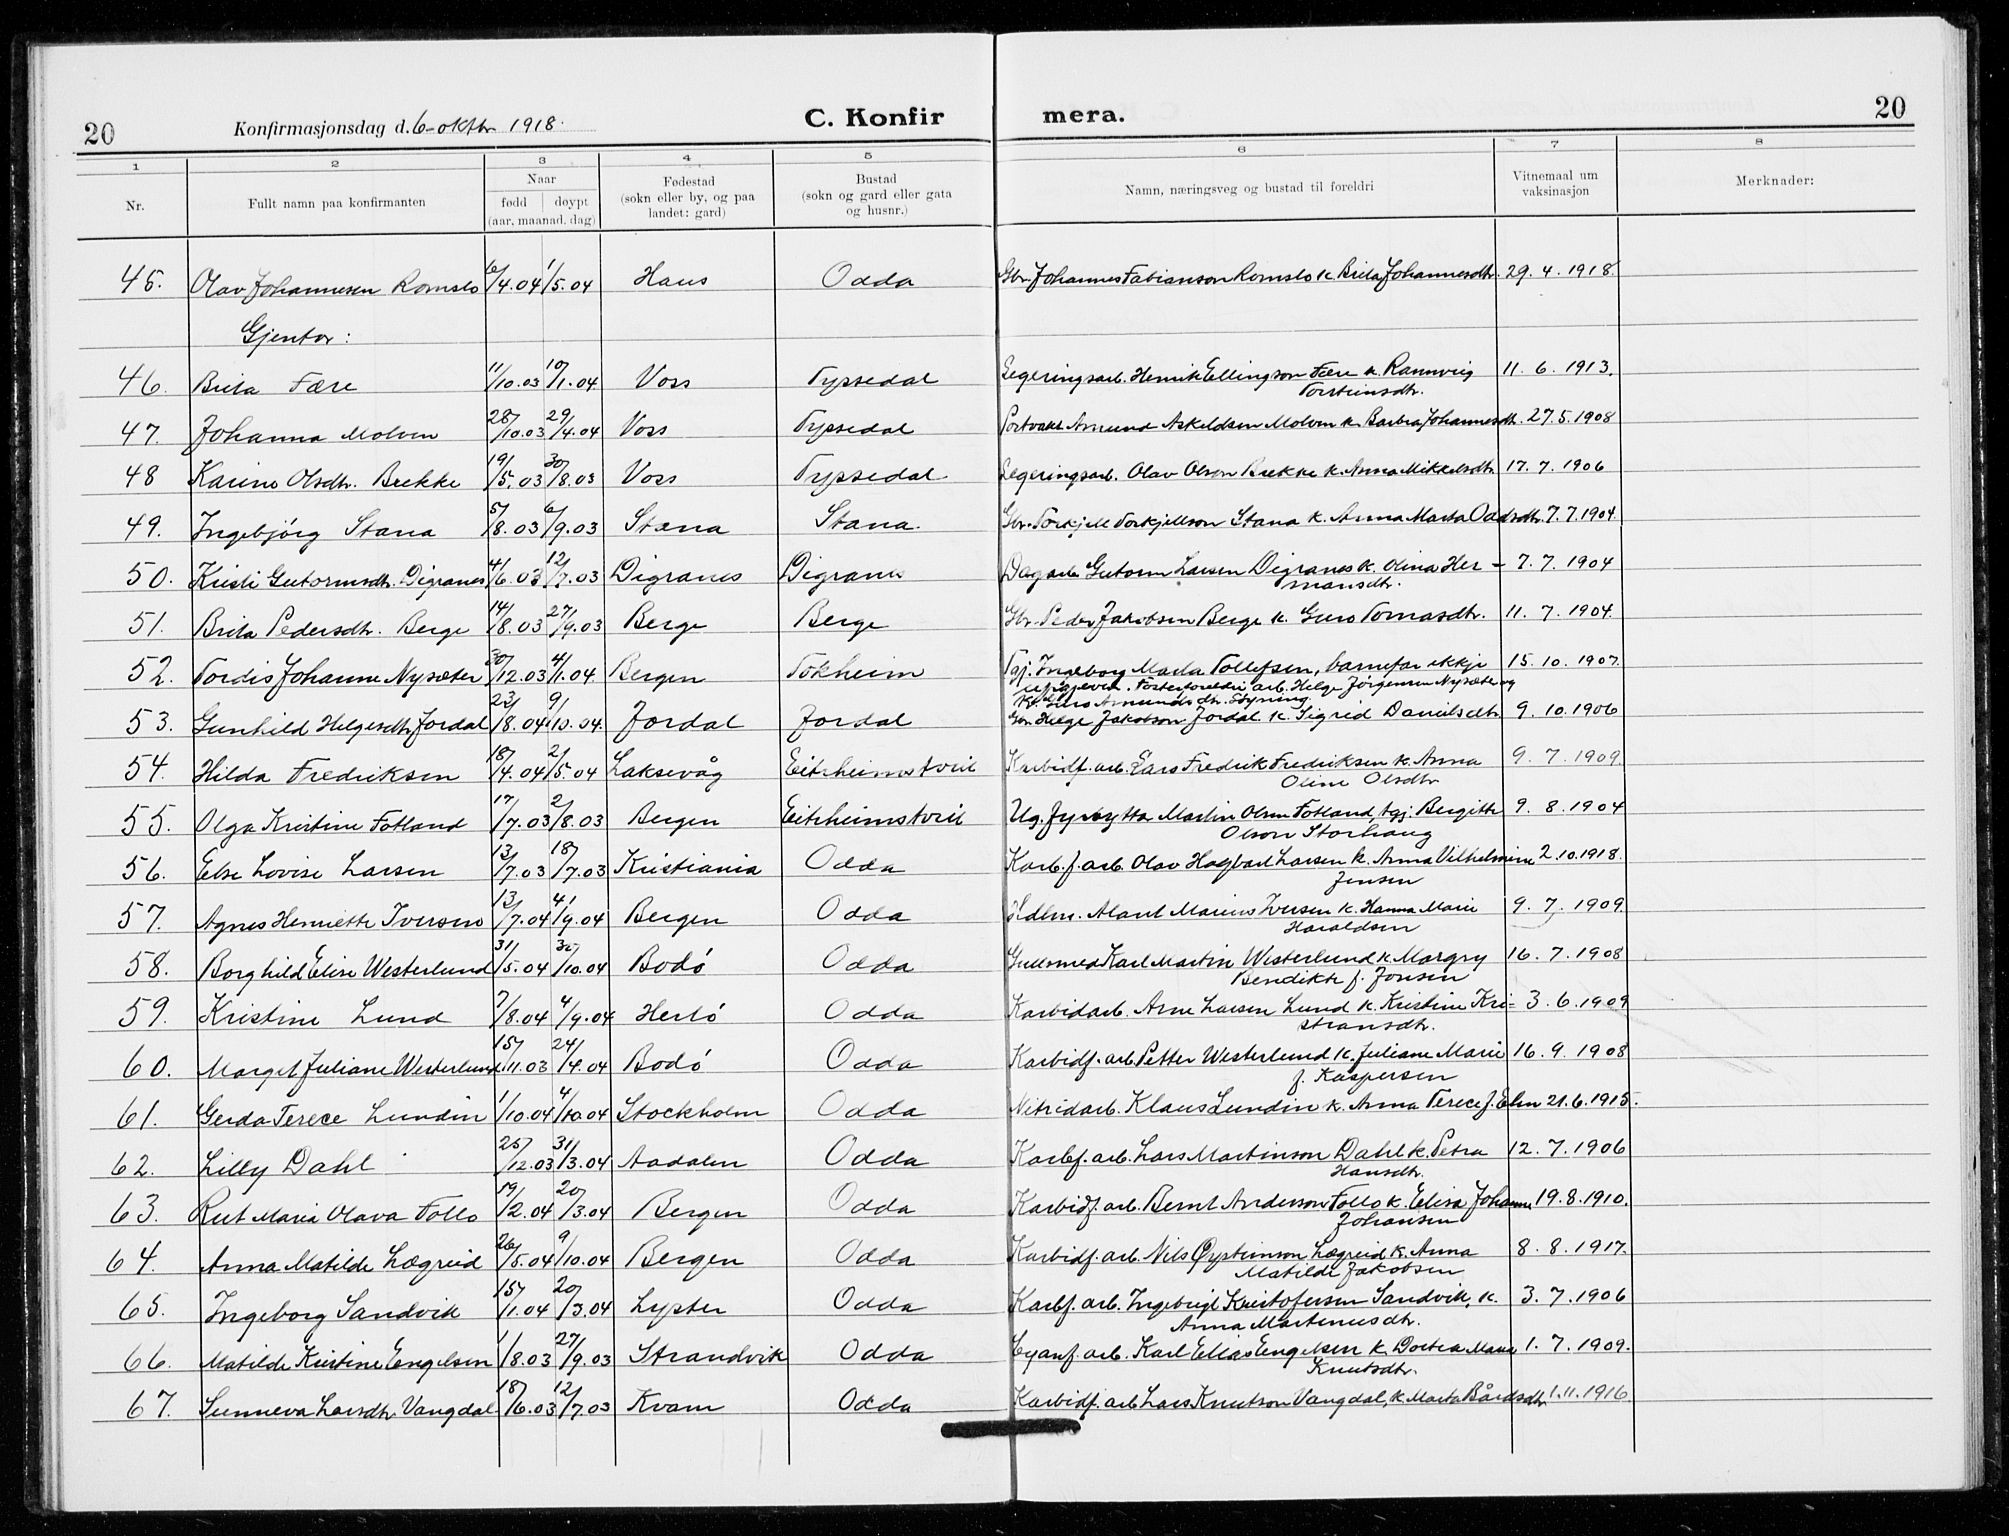 20 Konfirmasjonsdag d. 6 oktbr 1918. C. Konfir mera. 20
1 2 3 4 5 6 7 8
Nr. Fullt namn paa konfirmanten Naar fødd døypt (aar, maanad, dag) Fødestad (sokn eller by, og paa landet: gard) Bustad (sokn og gard eller gata og husnr.) Namn, næringsveg og bustad til foreldri Vitnemaal um vaksinasjon Merknader:
45. Olav Johannesen Romslo 6/4.04 1/5.04 Haus Odda Gbr. Johannes Fabianson Romslo k. Brita Johannesdtr. 29.4.1918.
Gjentor:
46. Brita Fære 11/10.03 10/1.04 Voss Tyssedal Legeringsarb. Henrik Ellingson Fære k. Rannveig
Torsteinsdtr. 11.6.1913.
47. Johanna Molven 28/10.03 29/4.04 Voss Tyssedal Portvakt Amund Askeldsen Molven k. Barbra Johannesdtr. 27.5.1908
48 Karine Olsdtr. Brekke 19/5.03 30/8.03 Voss Tyssedal Legeringsarb. Olav Olson Brekke k. Anna Mikkelsdtr. 17.7.1906
49. Ingebjørg Stana 5/8.03 6/9.03 Stana Stana. Gbr. Torkjell Torkjellson Stana k. Anna Marta Oddsdtr. 7.7.1904.
50. Kristi Gutormsdtr. Digranes 4/6.03 12/7.03 Digranes Digranes Dagarb. Gutorm Larsen Digranes k. Olina Her-
mansdtr. 7.7.1904
51. Brita Pedersdtr. Berge 14/8.03 27/9.03 Berge Berge Gbr. Peder Jakobsen Berge k. Guro Tomasdtr. 11.7.1904.
52. Tordis Johanne Nysæter 30/12.03 4/1.04. Bergen Tokheim Tgj. Ingeborg Marta Tollefsen, barnefar ikkje 15.10.1907.
uppgjeven. Fosterforeldri arb. Helge Jörgensen Nysæter og
k. Guro Amundsdtr.
53. Gunhild Helgesdtr. Jordal 23/8.04 9/10.04. Jordal Jordal Gbr. Helge Jakobson Jordal k. Sigrid Danielsdtr. 9.10.1906
54. Hilda Fredriksen 18/4.04 2/5.04 Laksevåg Eitrheimstreit Karbidf. arb. Lars Fredrik Fredriksen k. Anna
Oline Olsdtr. 9.7.1909.
55. Olga Kristine Fotland 17/7.03 2/8.03 Bergen Eitrheimstreit Ug. fyrbytta Martin Olsen Fotland, tgj. Bergitte
Olson Storhaug 9.8.1904
56. Else Lovise Larsen 13/7.03 18/7.03 Kristiania Odda Karb.f. arb. Olav Hagbart Larsen k. Anna Vilhelmine
Jensen 2.10.1918.
57. Agnes Henriette Iversen 13/7.04 4/9.04 Bergen Odda Hdlm. Marius Iversen k. Hanna Marie
Haraldsen 9.7.1909.
58. Borghild Elise Westerlund 31/5.04 30/10.04 Bodö Odda Gullsmed Karl Martin Westerlund k. Margry
Bendikte f. Jonsen 16.7.1908
59. Kristine Lund 7/8.04 4/9.04 Herlö Odda Karbidarb. Arne Larsen Lund k. Kristine Kri-
stiansdtr. 3.6.1909
60. Margit Juliane Westerlund 15/11.03 24/4.04 Bodö Odda Karbidf. arb. Petter Westerlund k. Juliane Marie
f. Kaspersen 16.9.1908
61. Gerda Terece Lundin 1/10.04 4/10.04 Stockholm Odda Nitridarb. Klaus Lundin k. Anna Terece f. Elm 21.6.1918.
62. Lilly Dahl 25/12.03 31/3.04 Aadalen Odda Karbf. arb. Lars Martinson Dahl k. Petra
Hansdtr. 12.7.1906
63. Rut Maria Olava Follo 19/2.04 20/3.04 Bergen Odda Karbidf. arb. Bernt Anderson Follo k. Elisa Johanne
Johansen 19.8.1910.
64. Anna Matilde Lægreid 26/5.04 9/10.04 Bergen Odda Karbidf. arb. Nils Øysteinson Lægreid k. Anna
Matilde Jakobsen 8.8.1917.
65. Ingeborg Sandvik 15/1.04 20/3.04 Lyster Odda Karbf. arb. Ingebrigt Kristofersen Sandvik, k.
Anna Martinusdtr. 3.7.1906
66. Matilde Kristine Engelsen 1/8.03 27/9.03 Strandvik Odda Cyanf. arb. Karl Elias Engelsen k. Dortea Maria
Knutsdtr. 1.7.1909.
67. Sunneva Larsdtr. Vangdal 18/6.03 12/7.03 Kvam Odda Karbidf. arb. Lars Knutson Vangdal, k. Marta Bårdsdtr. 1.11.1916.